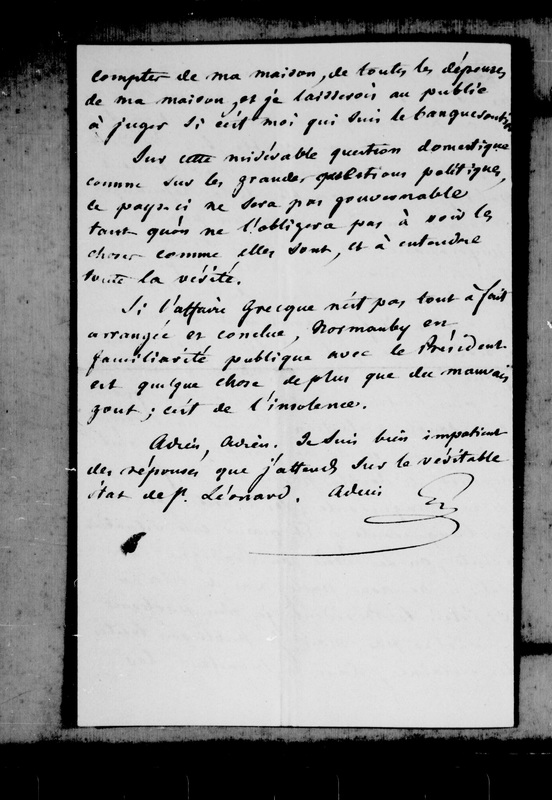 compter de ma maison, de toutes les dépenses
de ma maison, et je laisserois au public
à juger si c'est moi qui suis le banqueroutier
Sur cette misérable question domestique
comme sur les grandes questions politiques,
ce pays-ci ne sera pas gouvernable
tant qu'on ne l'obligera pas à voir les
choses comme elles sont, et à entendre
toute la vérité.
Si l'affaire Grecque n'est pas tout à fait
arrangée et conclue, Normanby en
familiarité publique avec le Président
est quelque chose de plus que du mauvais
gout ; c'est de l'insolence.
Adieu, Adieu. Je suis bien impatient
des réponses que j'attends sur le véritable
état de St. Léonard. Adieu